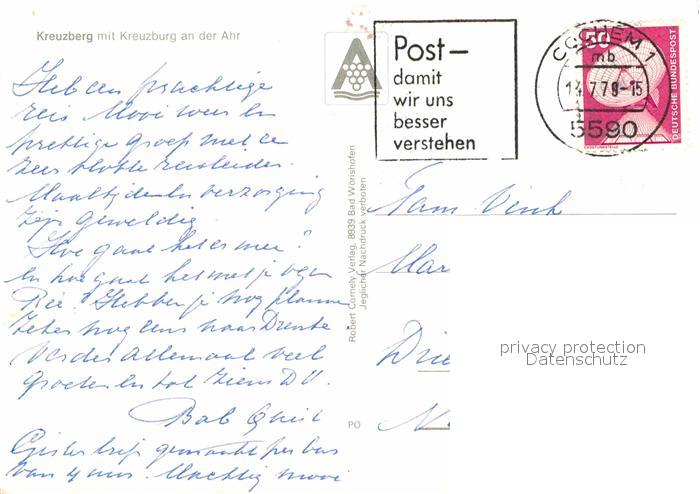 Kreuzberg mit Kreuzburg an der Ahr
Hebben prachtige
reis Mooi weer en
prettige groep met een
zeer vlotte reisleider.
Maaltijden en verzorging
zijn geweldig.
Hoe gaat het er mee?
En hoe gaat het met je ogen
Rie? Hebben je nog plannen
Zeker nog eens naar Drente
Verder allemaal veel
groeten en tot ziens D.V.
Bab
Gister trip gemaakt per bus
van 4 uur. Machtig mooi
Robert Cornely Verlag, 8939 Bad Wörishofen
Jeglicher Nachdruck verboten
PO
Post—
damit
wir uns
besser
verstehen
COCHEM 1
mb
14.7.78-15
5590
50
DEUTSCHE BUNDESPOST
ERDEFUNKSTELLE
Fam. Vink
Mar
Drie
N
privacy protection
Datenschutz